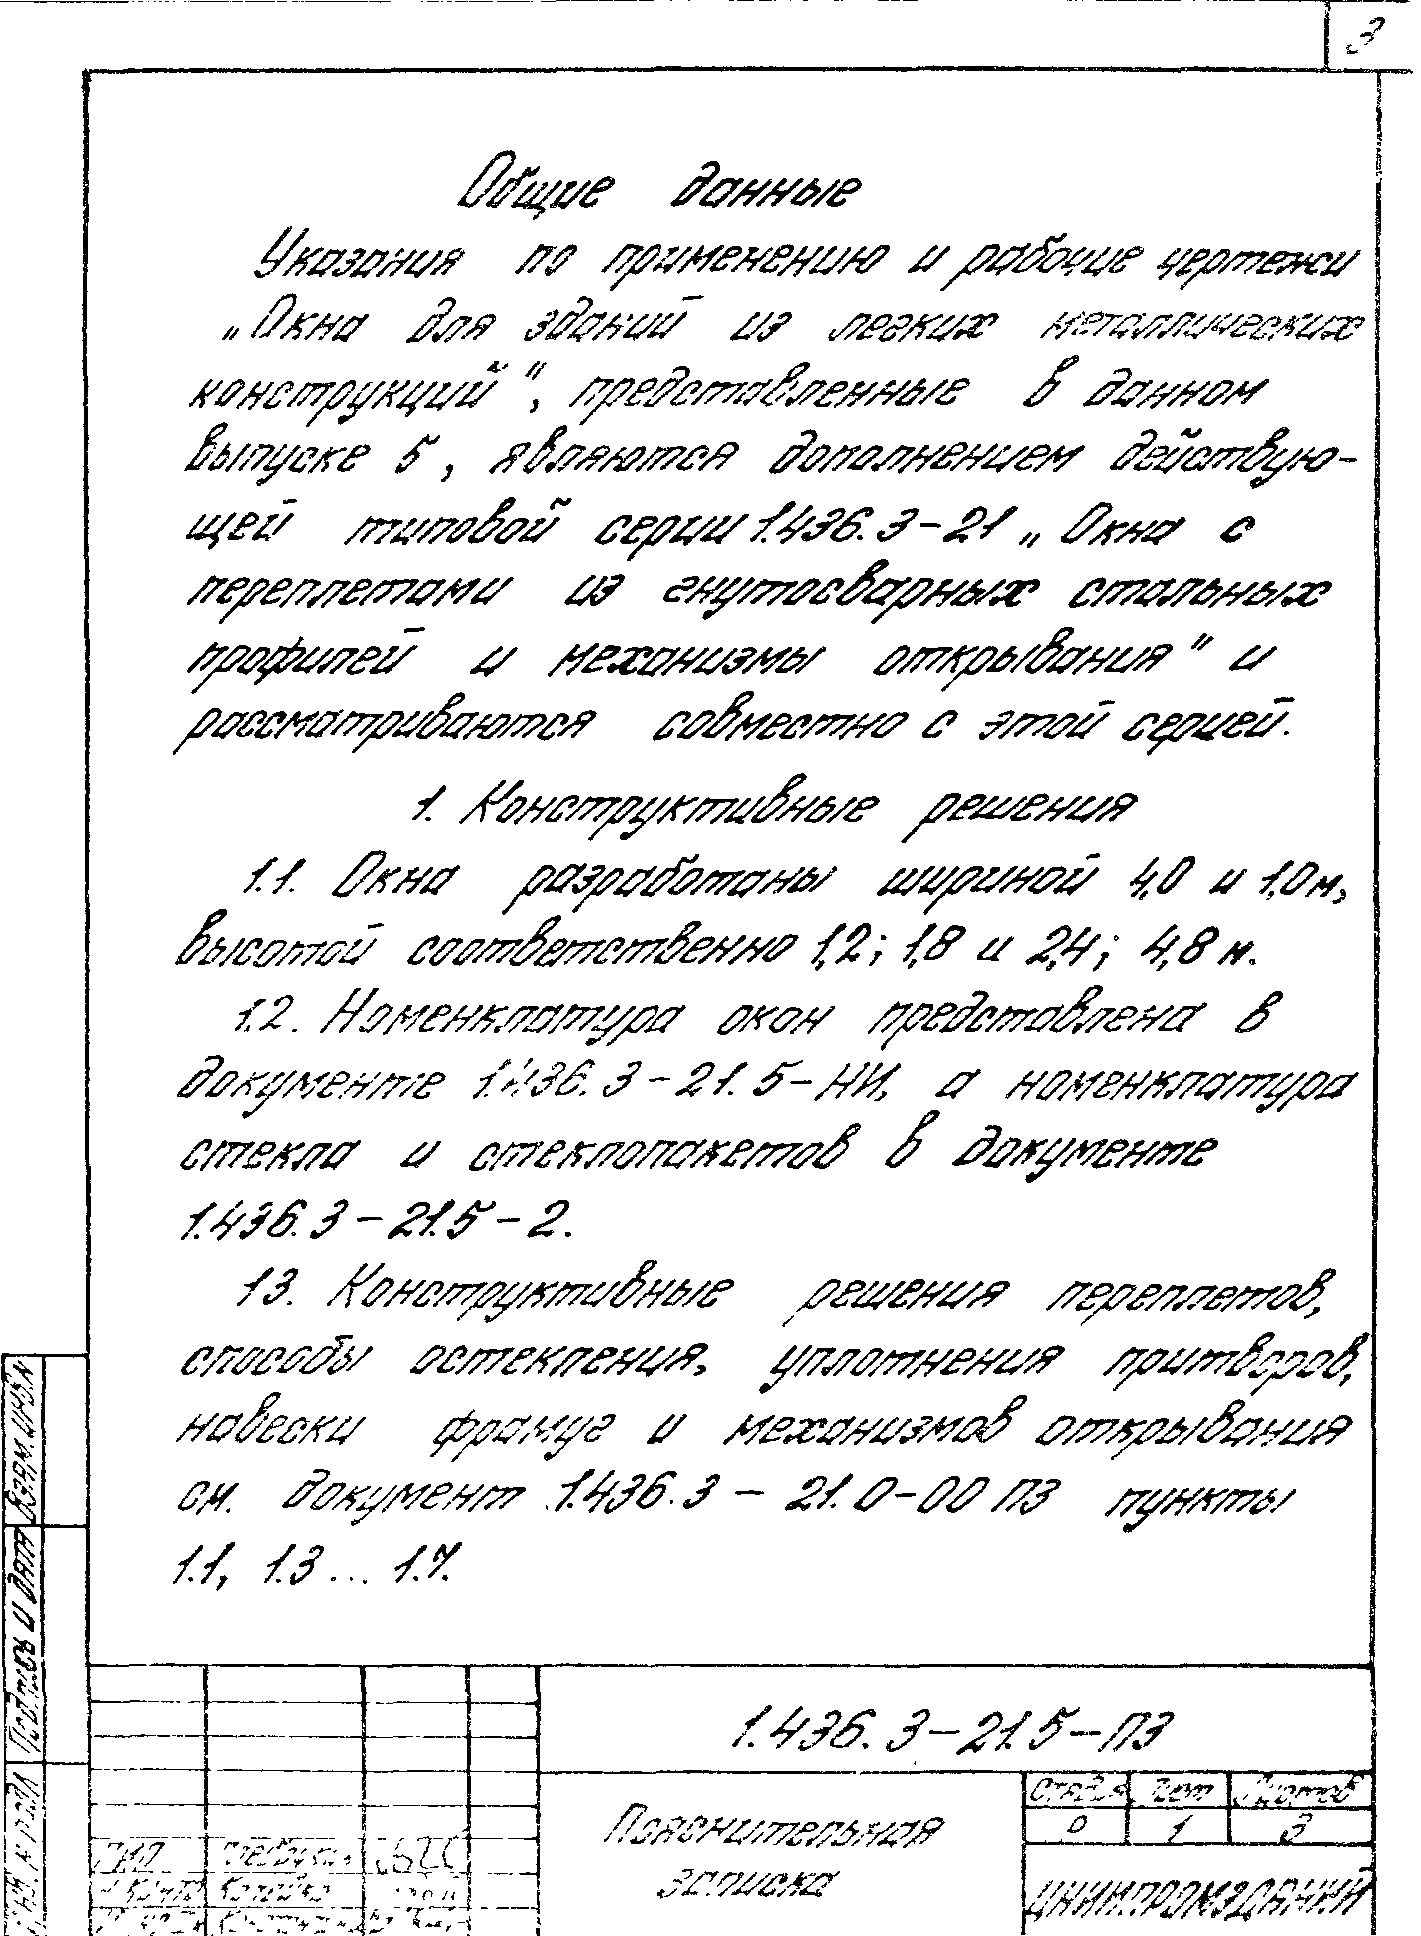 3
Общие данные
Указания по применению и рабочие чертежи
„Окна для зданий из легких металлических
конструкций", представленные в данном
выпуске 5, являются дополнением действую-
щей типовой серии 1.436.3-21 „Окна с
переплетами из гнутосварных стальных
профилей и механизмы открывания" и
рассматриваются совместно с этой серией.
1. Конструктивные решения
1.1. Окна разработаны шириной 4,0 и 1,0 м,
высотой соответственно 1,2; 1,8 и 2,4; 4,8 м.
1.2. Номенклатура окон представлена в
документе 1.436.3-21.5-НИ, а номенклатура
стекла и стеклопакетов в документе
1.436.3-21.5-2.
1.3. Конструктивные решения переплетов,
способы остекления, уплотнения притворов,
навески фрамуг и механизмов открывания
см. документ 1.436.3-21.0-00 ПЗ пункты
1.1, 1.3 ... 1.7.
Взам. инв. N
Подпись и дата
Инв. N подл
1.436.3-21.5-ПЗ
Пояснительная
записка
Стадия Лист Листов
Р 1 3
ЦНИИПРОМЗДАНИЙ
ГИП
Н. контр